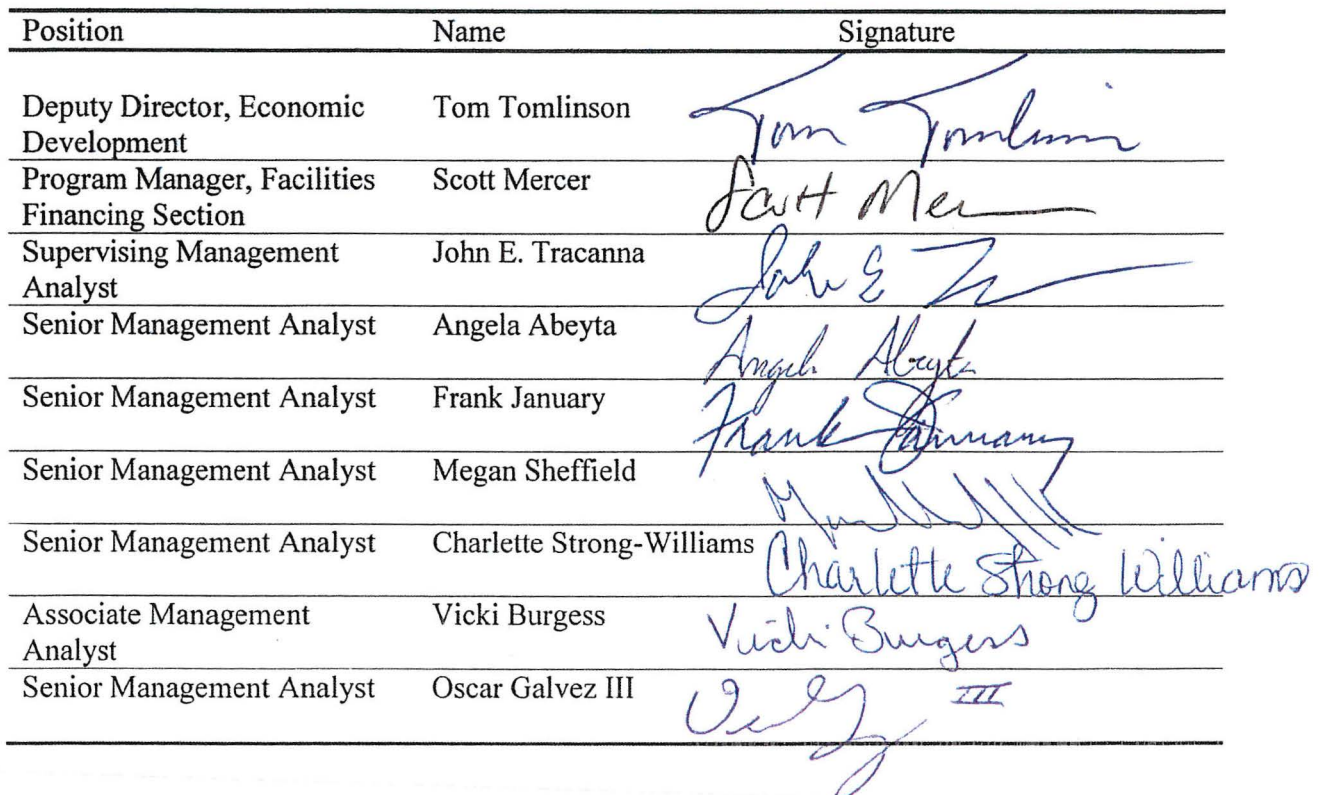 Position Name Signature
Deputy Director, Economic Tom Tomlinson Tom Tomlinson
Development
Program Manager, Facilities Scott Mercer Scott Mer
Financing Section
Supervising Management John E. Tracanna John E
Analyst
Senior Management Analyst Angela Abeyta Angela Abeyta
Senior Management Analyst Frank January Frank January
Senior Management Analyst Megan Sheffield
Senior Management Analyst Charlette Strong-Williams Charlette Strong Williams
Associate Management Vicki Burgess Vicki Burgess
Analyst
Senior Management Analyst Oscar Galvez III III